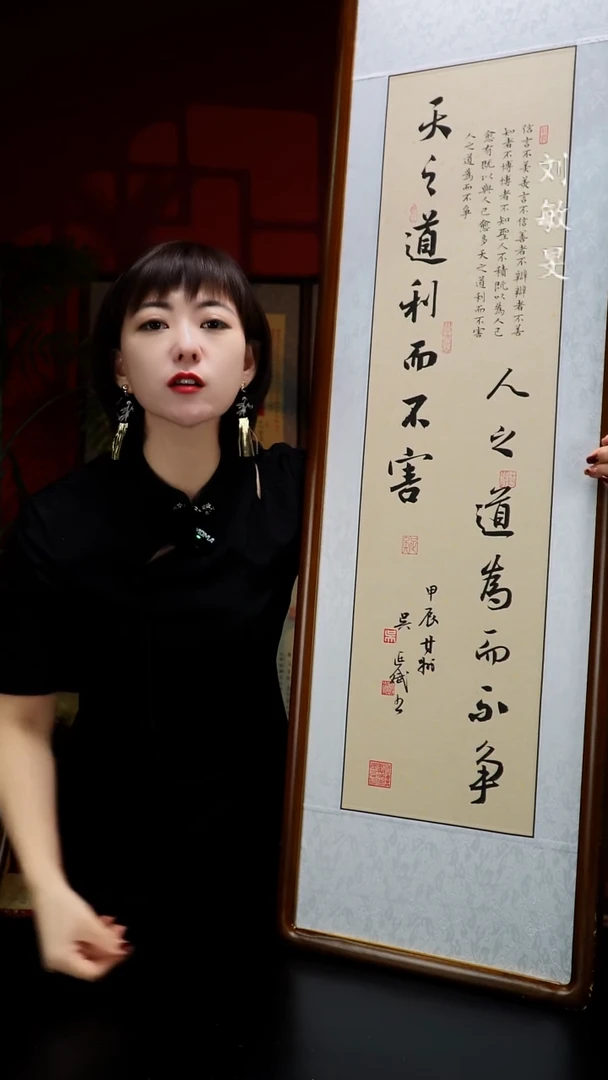 刘敏旻
信言不美美言不信善者不辯辯者不善
知者不博博者不知聖人不積既以為人己
愈有既以與人己愈多天之道利而不害
人之道為而不爭
天之道利而不害
人之道為而不争
甲辰
吴